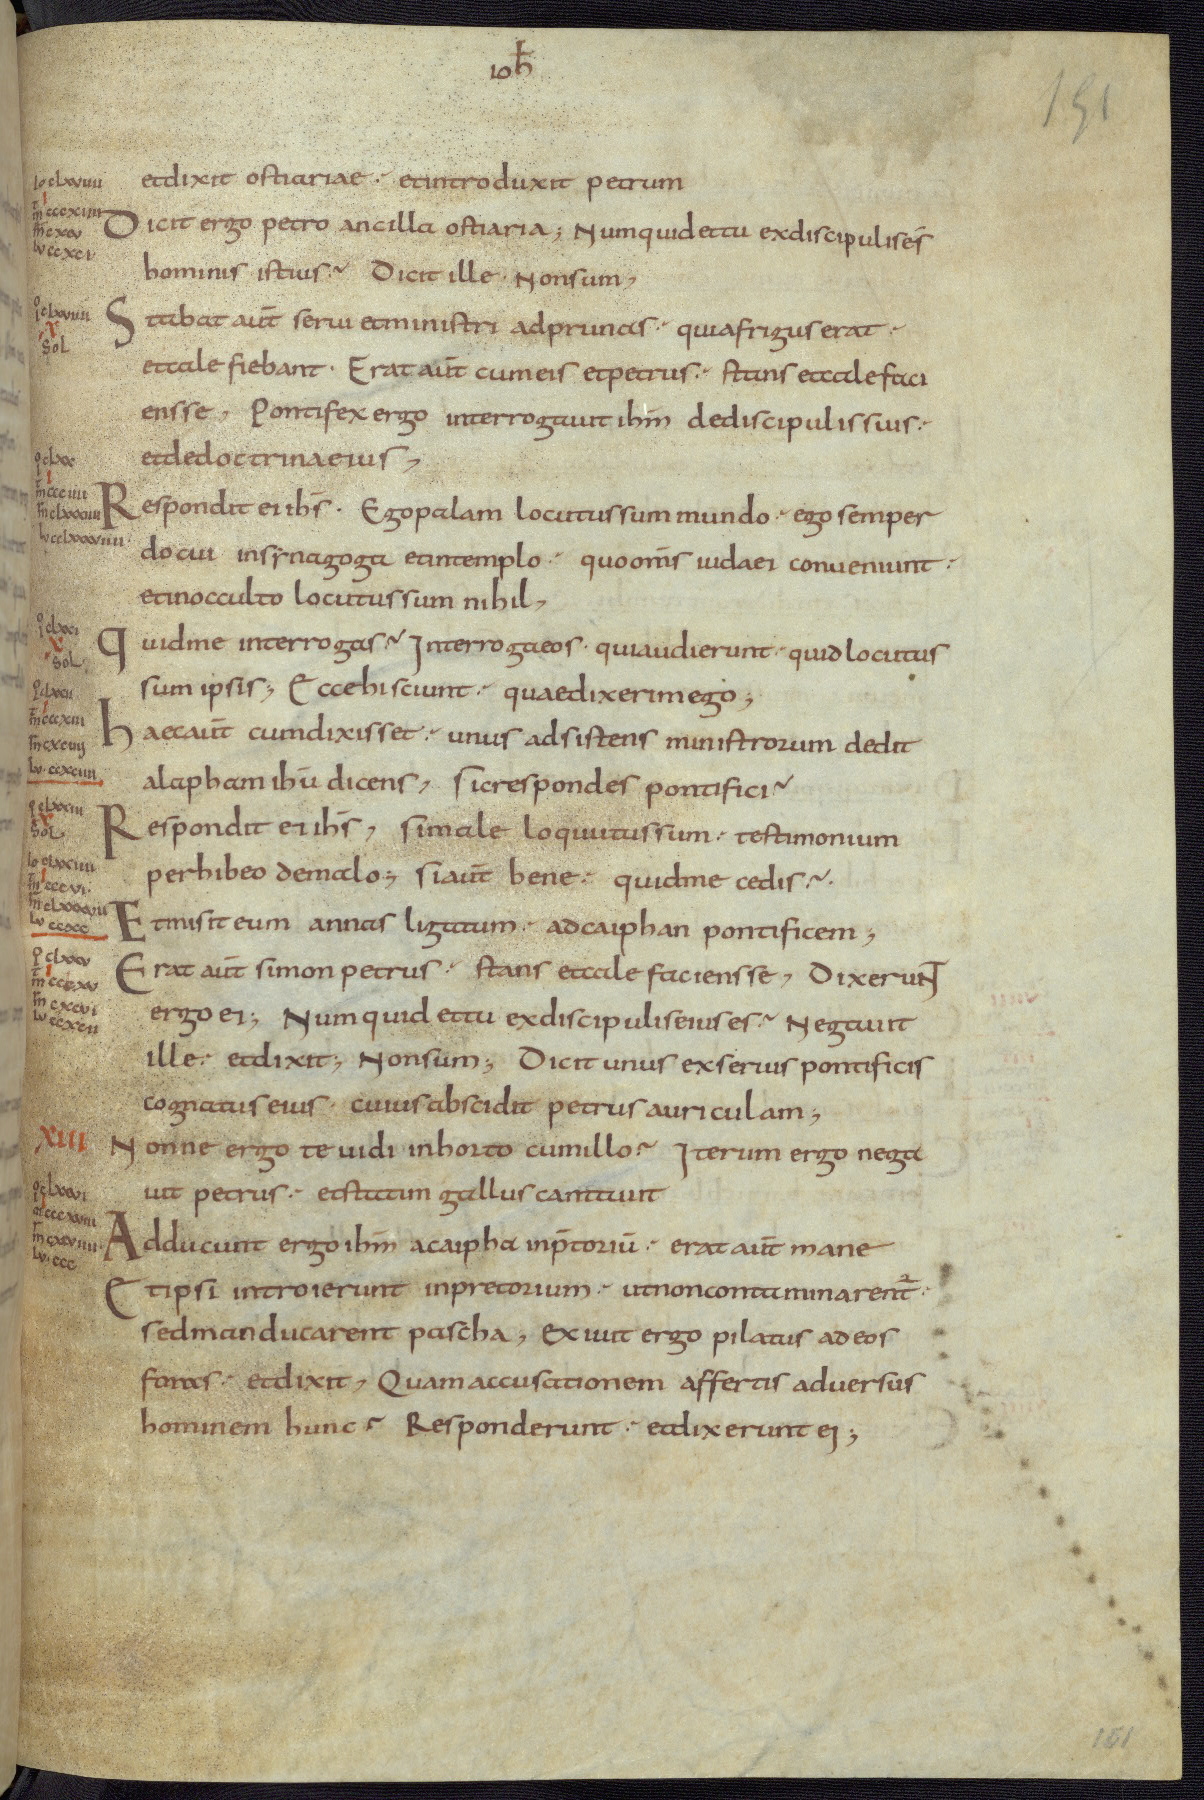 ioħ
191
etdixit ostiariae · etintroduxit petrum
Dicit ergo petro ancilla ostiaria; Numquidettu exdiscipulisēs
hominis istius? Dicit ille · Nonsum,
Stabat aūt serui etministri adprunas · quiafrigus erat ·
etcale fiebant · Erat aūt cumeis etpetrus · stans etcalefaci
ensse, Pontifex ergo interrogauit ihm̄ dediscipulissuis ·
etdedoctrinaeius,
Respondit ei ihs̄ · Egopalam locutussummundo · ego semper
docui insynagoga etintemplo · quoom̄s iudaei conueniunt ·
etinocculto locutussum nihil,
Quidme interrogas? Interrogaeos · quiaudierunt · quidlocutus
sum ipsis; Eccehisciunt · quaedixerimego;
haecaūt cumdixisset · unus adsistens ministrorum dedit
alaphamihū dicens, sicrespondes pontifici?
Respondit ei ihs̄, simale loquutussum · testimonium
perhibeo demalo; siaūt bene · quidme cedis?
Etmisit eum annas ligatum · adcaiphan pontificem;
Erat aūt simon petrus · stans etcale faciensse, Dixerunt
ergo ei; Numquid ettu exdiscipuliseius es? Negauit
ille · etdixit; Nonsum; Dicit unus exseruis pontificis
cognatus eius · cuiusabscidit petrus auriculam;
XIII Nonne ergo te uidi inhorto cumillo? Iterum ergo nega
uit petrus · etstatim gallus cantauit
Adducunt ergo ihm̄ acaipha inp̄toriū · erat aūt mane
Et ipsi introierunt inpretorium · utnoncontaminarent̄ ·
sedmanducarent pascha, Exiuit ergo pilatus ad eos
foras · etdixit, Quamaccusationem affertis aduersus
hominem hunc? Responderunt · etdixerunt ei;
191